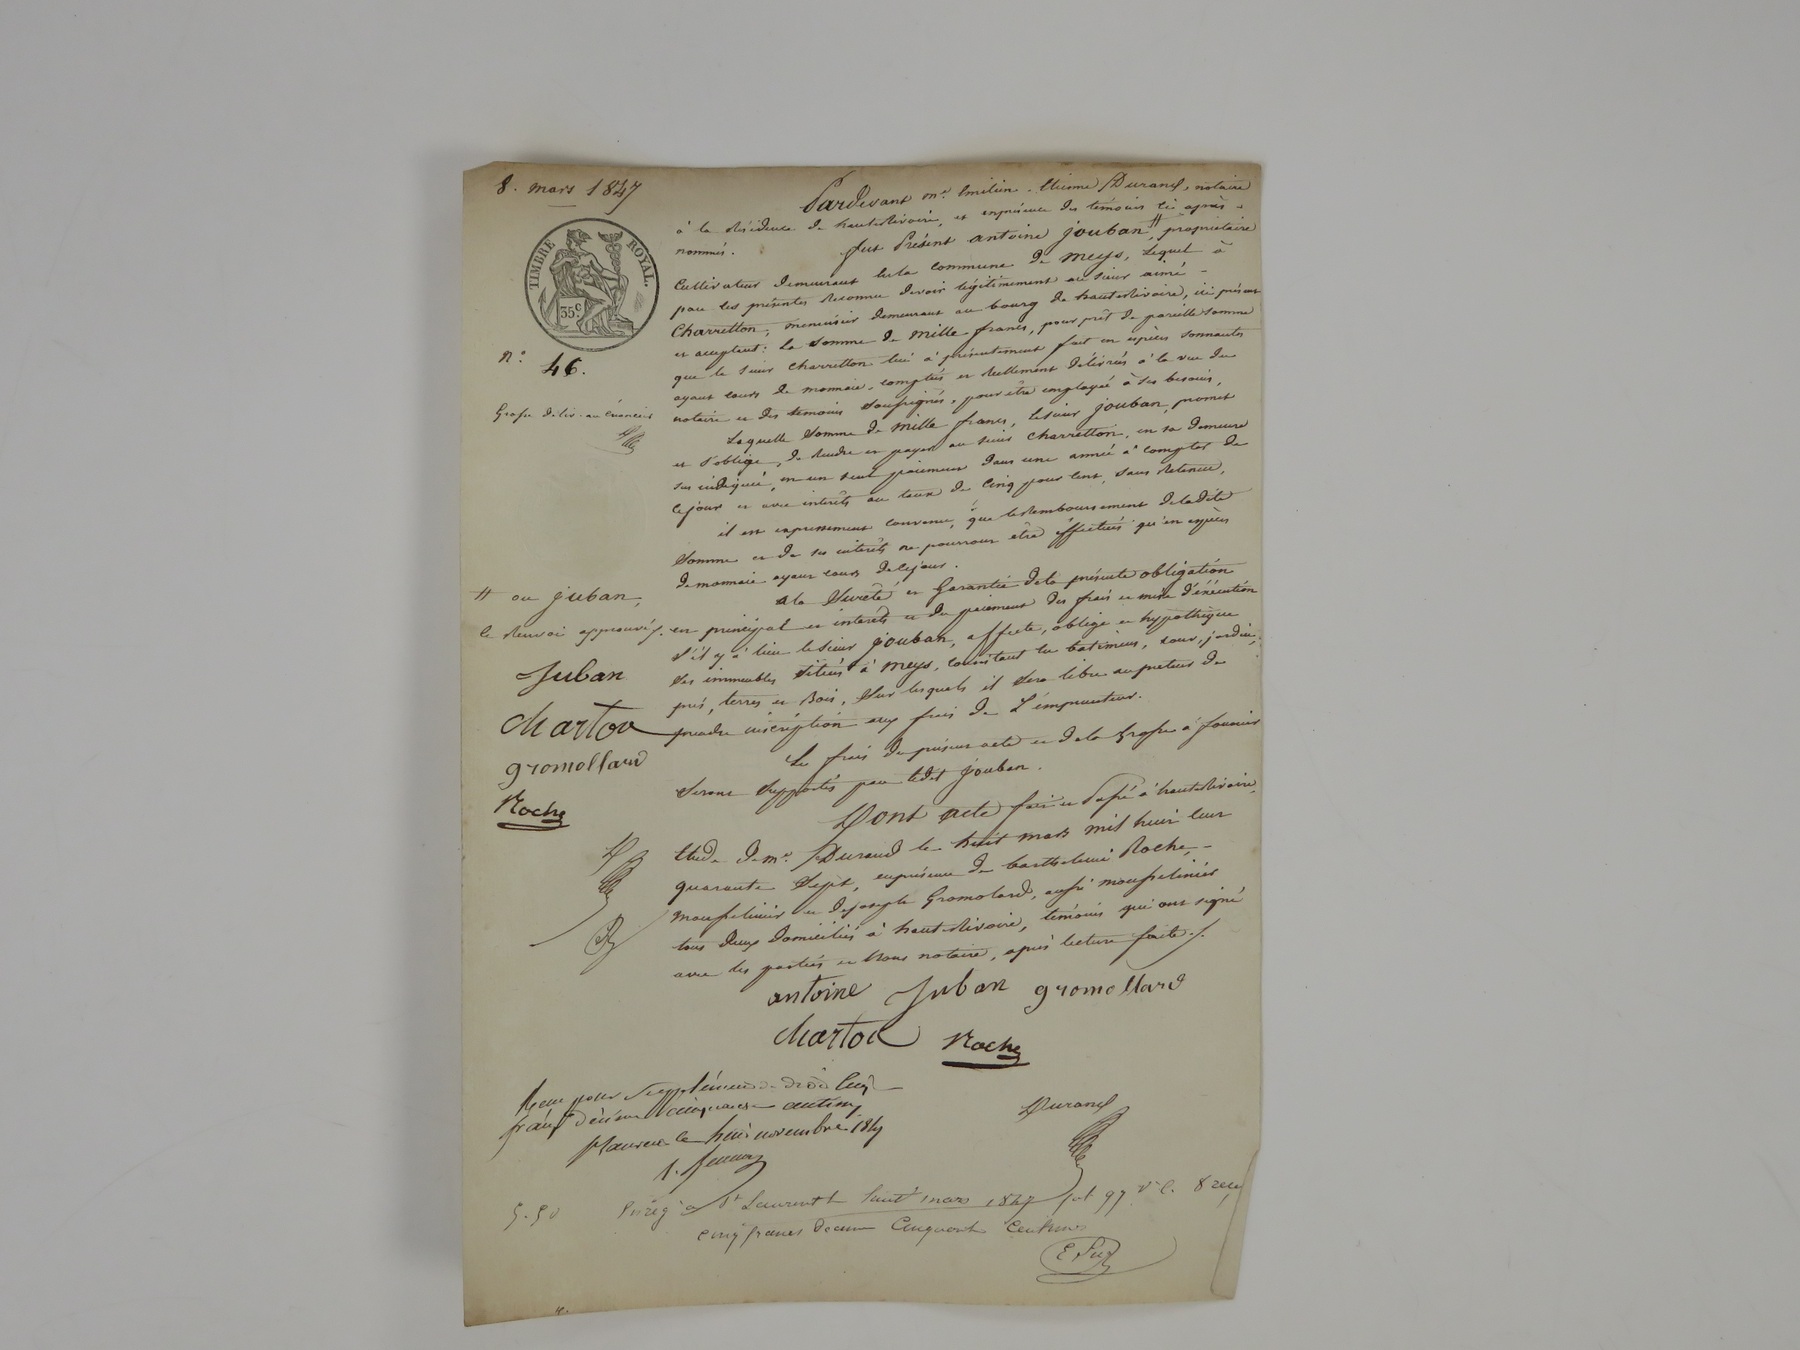 8. mars 1847
TIMBRE ROYAL.
35 c
N.o 46.
Grosse déliv. au créancier
Pardevant me. Emilien - Etienne Durand, notaire
à la résidence de haute Rivoire, et enprésence des témoins ci après -
nommés. fut Présent antoine jouban, # propriétaire
Cultivateur demeurant en la commune de Meys, Lequel à
par les présentes Reconnu devoir légitimement au sieur aimé -
Charretton, menuisier demeurant au bourg de haute Rivoire, ici présent
et acceptant: La Somme de Mille francs, pour prêt de pareille Somme
que le sieur Charretton lui à présentement fait en espèces sonnantes
ayant cours de monnaie, comptés et Réellement délivrés à la vue du
notaire et des témoins Soussignés, pour être employée à Ses besoins,
Laquelle Somme de Mille francs, le sieur jouban, promet
et s'oblige, de Rendre et payer au sieur Charretton, en sa demeure
sus indiquée, en un seul paiement dans une année à compter de
ce jour et avec intérêts au taux de Cinq pour cent, sans Retenue,
il est expressement convenu, que le Remboursement de ladite
Somme et de ses intérêts ne pourront être éffectués qu'en espèces
de monnaie ayant cours de ce jour.
a la Sureté et Garantie dela présente obligation
en principal et intérêts et du paiement des frais et mise d'éxécution
S'il y à lieu le sieur jouban, affecte, oblige et hypothèque
Ses immeubles Situés à Meys, consistant en batimens, cour, jardin,
prés, terres et Bois, Sur lesquels il Sera libre au preteur de
prendre inscription aux frais de L'emprunteur.
Les frais du présent acte et de la Grosse à fournir
Seront Supportés par ledit jouban.
Dont acte fait et Passé à haute Rivoire,
Etude de me. Durand le huit mars mil huit cent
quarante Sept, enprésence de barthelemi Roche, -
Mousselinier et de joseph Gromolard, aussi mousselinier
tous deux domiciliés à haute Rivoire, témoins qui ont signé
avec les parties et Nous notaire, après lecture faite./.
# ou juban,
le Renvoi approuvé/.
Juban
Charton
gromollard
Roche
antoine Juban gromollard
Charton Roche
Durand
Reçu pour Supplément de droit Cinq
francs décime cinquante centimes
St Laurent le huit novembre 1847
5.50
Enreg à St Laurent le huit mars 1847 fol 97 vo C. 8 reçu
cinq francs décime Cinquante Centimes